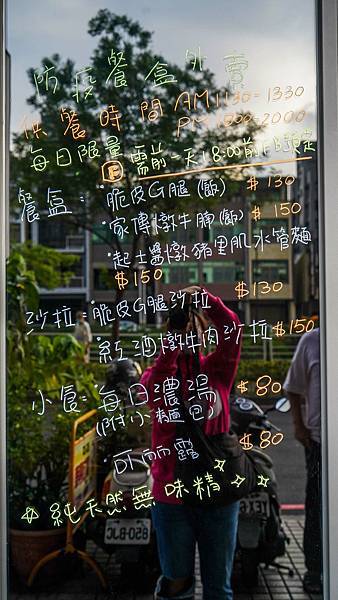 防疫餐盒外賣
供餐時間 AM1130-1330
PM1800-2000
每日限量 需前一天18:00前FB預定
餐盒:·脆皮G腿(飯) $130
·家傳燉牛腩(飯) $150
·起士醬燉豬里肌水管麵
$150
沙拉:·脆皮G腿沙拉 $130
·紅酒燉牛肉沙拉 $150
小食:·每日濃湯 $80
(附小麵包)
·可麗露 $80
純天然無味精